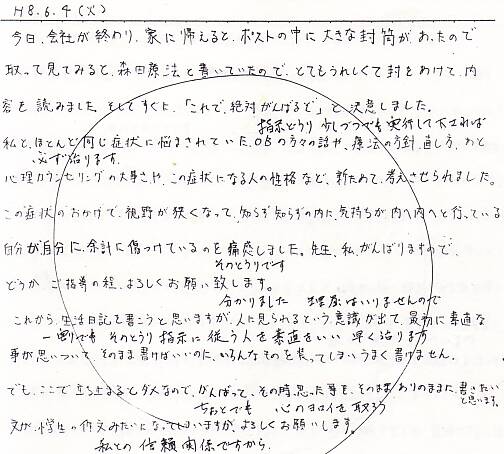 H8.6.4(火)
今日、会社が終わり、家に帰えると、ポストの中に大きな封筒があったので
取って見てみると、森田療法と書いていたので、とてもうれしくて封をあけて、内
容を読みました。そしてすぐに、「これで、絶対がんばるぞ」と決意しました。
指示どうり少しづつでも実行して下されば
私と、ほとんど同じ症状に悩まされていた、OBの方々の話や、療法の方針、直し方、あと
必ず治ります
心理カウンセリングの大事さや、この症状になる人の性格など、新ためて、考えさせられました。
この症状のおかげで、視野が狭くなって、知らず知らずの内に、気持ちが内へ内へと行っている
自分が自分に、余計に傷つけているのを痛感しました。先生、私、がんばりますので、
そのとうりです
どうか、ご指導の程、よろしくお願い致します。
分かりました 無理はいりませんので
これから、生活日記を書こうと思いますが、人に見られるという意識が出て、最初に素直な
一割でも そのとうり指示に従う人を素直といい 早く治ります
事が思いついて、そのまま書けばいいのに、いろんなものを装ってしまいうまく書けません。
でも、ここで立ち止まるとダメなので、がんばって、その時思った事を、そのまま、ありのままに、書いたい
と思います。
ちょとでも 心のヨロイを取ろう
文が、小学生の作文みたいになってしまいますが、よろしくお願いします。
私との信頼関係ですから